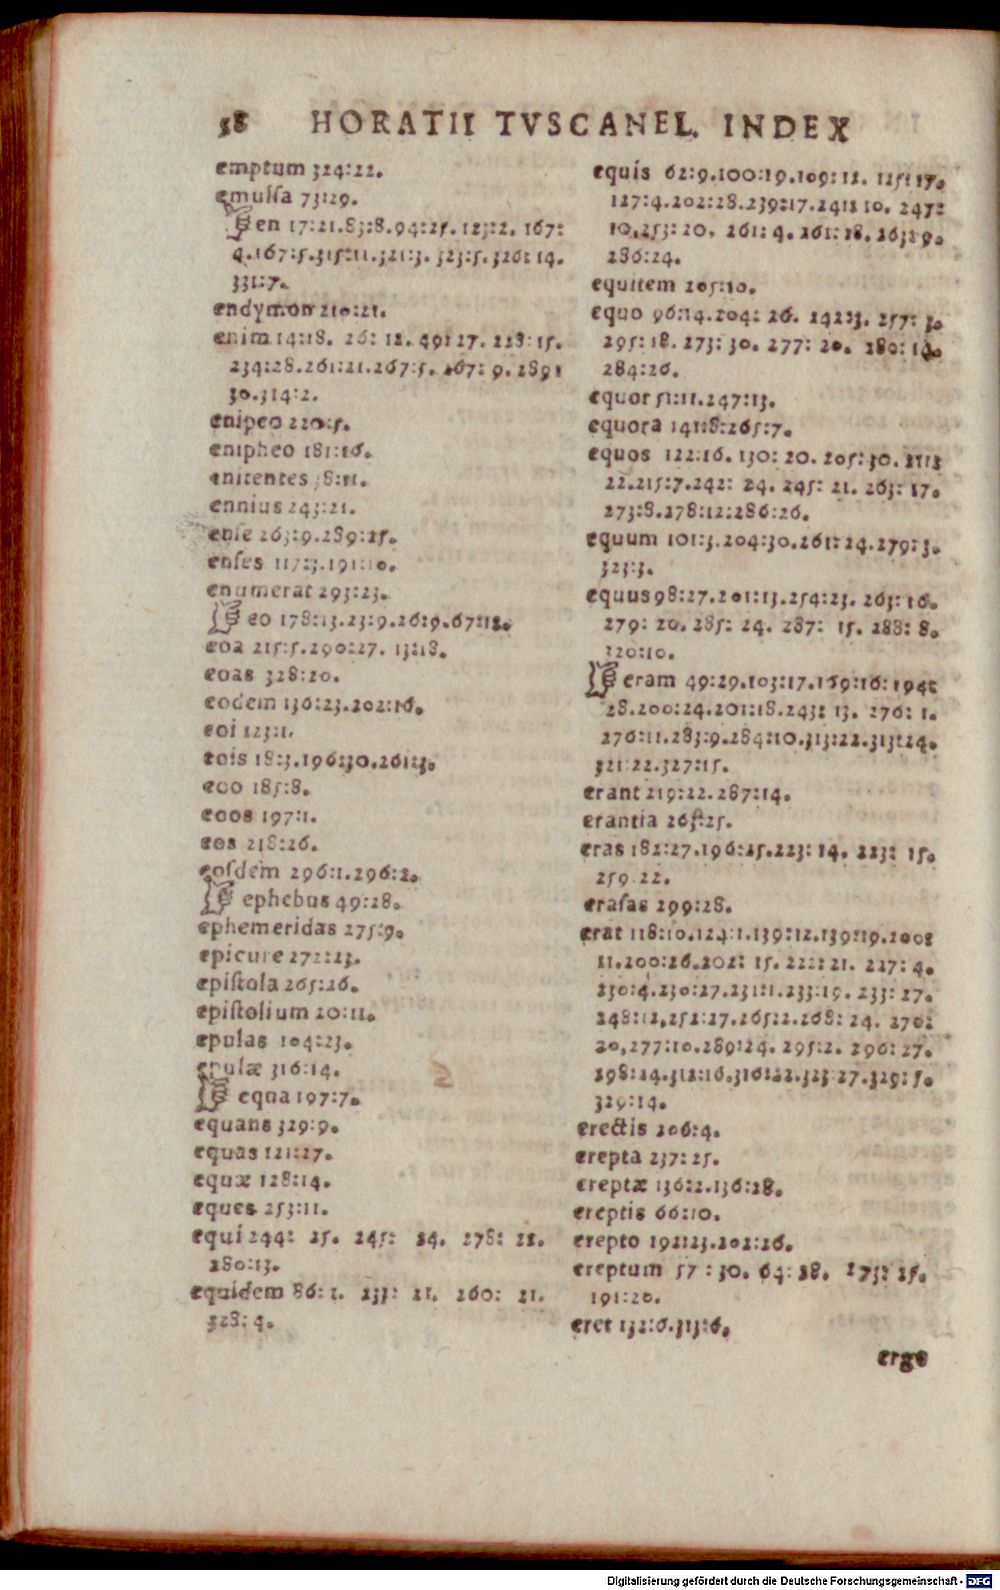 38 HORATII TVSCANEL. INDEX
emptum 324:22.
emulsa 73:29.
☞ en 17:21.83:8.94:25.123:2. 167:
4.167:5.315:11.321:3. 323:5.326:14.
331:7.
endymion 210:21.
enim 14:18. 26: 12. 49:27. 228:15.
234:28.261:21.267:5. 267: 9.289:
30.314:2.
enipeo 220:5.
enipheo 181:16.
enitentes 8:11.
ennius 243:21.
ense 263:9.289:25.
enses 117:3.191:10.
enumerat 293:23.
☞ eo 178:13.23:9.26:9.67:12.
eoa 215:5.290:27. 13:18.
eoas 328:20.
eodem 136:23.202:16.
eoi 123:1.
eois 18:3.196:30.261:3.
eoo 185:8.
eoos 197:1.
eos 218:26.
eosdem 296:1.296:2.
☞ ephebus 49:28.
ephemeridas 275:9.
epicure 272:23.
epistola 265:26.
epistolium 20:11.
epulas 104:23.
epulæ 316:14.
☞ equa 197:7.
equans 329:9.
equas 121:27.
equæ 128:14.
eques 253:11.
equi 244: 25. 245: 24. 278: 21.
280:13.
equidem 86: 1. 233: 21. 260: 21.
328: 4.
equis 62:9.100:19.109: 12. 125:17.
127:4.202:28.239:17.241: 10. 247:
10.253: 20. 261: 4. 261: 18. 263: 9.
286:24.
equitem 205:10.
equo 96:14.204: 26. 242:3. 257: 3.
295: 18. 273: 30. 277: 20. 280: 14.
284:26.
equor 51:11.247:13.
equora 141:8:265:7.
equos 122:16. 130: 20. 205: 30. 211:
22.215:7.242: 24. 245: 21. 263: 17.
273:8.278:12:286:26.
equum 101:3.204:30.261: 24.279: 3.
323:3.
equus 98:27.201:13.254:23. 263: 16.
279: 20. 285: 24. 287: 15. 288: 8.
320:10.
☞ eram 49:29.103:17.159:16: 194:
28.200:24.201:18.243: 13. 276: 1.
276:11.283:9.284:10.313:22.313:24.
321:22.327:15.
erant 219:22.287:14.
erantia 265:25.
eras 182:27.196:25.223: 14. 223: 15.
259 22.
erasas 299:28.
erat 118:10.124:1.139:12.139:19.200:
11.200:26.202: 15. 222: 21. 227: 4.
230:4.230:27.231:1.233:19. 233: 27.
248:12,252:27.265:2.268: 24. 270:
20,277:10.289:24. 295:2. 296: 27.
298:24.312:16.316:22.323 27.329: 5.
329:14.
erectis 206:4.
erepta 237:25.
ereptæ 136:2.136:28.
ereptis 66:10.
erepto 192:23.202:26.
ereptum 57 : 30. 64: 28. 175: 25.
191:20.
eret 132:6.313:6.
ergo
Digitalisierung gefördert durch die Deutsche Forschungsgemeinschaft - DFG